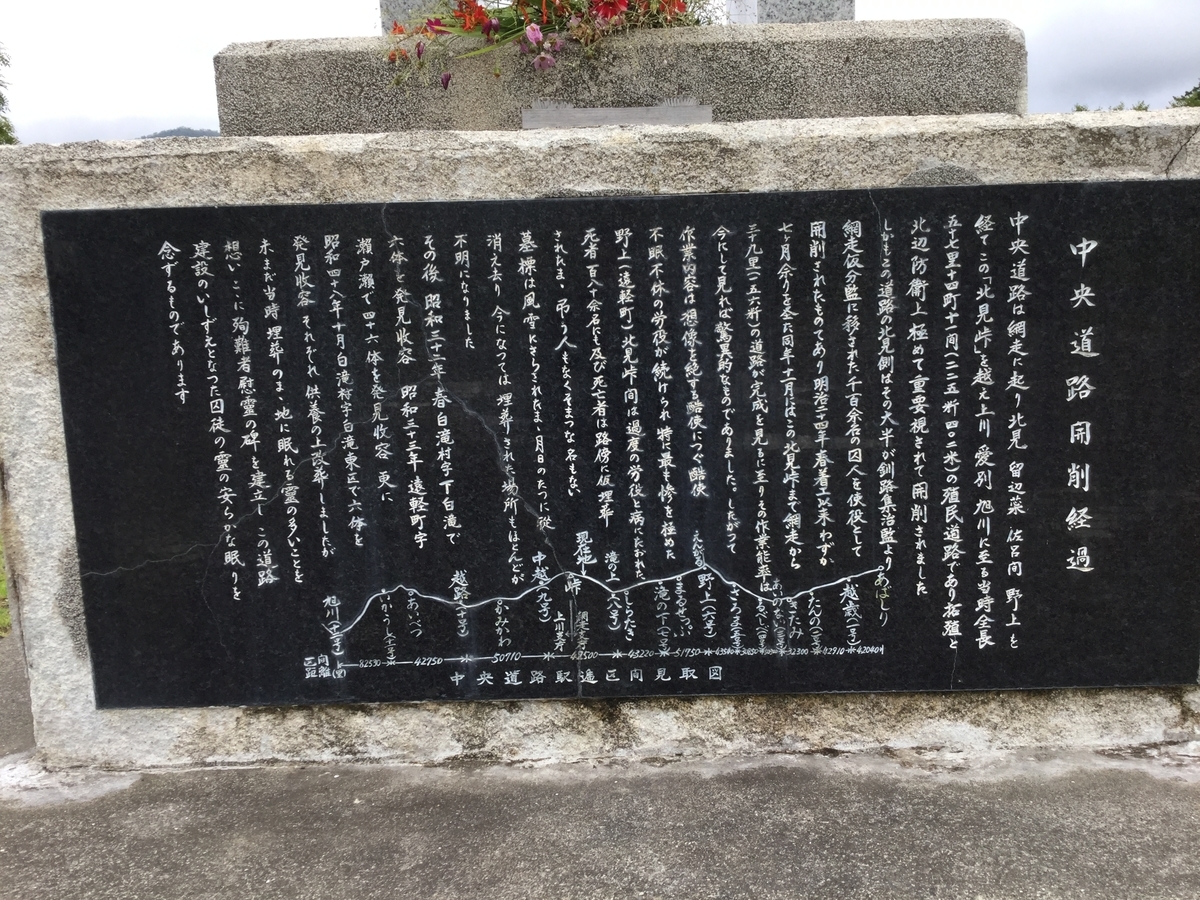 中央道路開削経過
中央道路は網走に起り北見 留辺蘂 佐呂間 野上を
経てこの「北見峠」を越え上川 愛別 旭川に至る当時全長
五七里十四町十一間(二二五粁四〇二米)の殖民道路であり拓殖と
北辺防衛上極めて重要視されて開削されました
しかしこの道路の北見側はその大半が釧路集治監より
網走仮分監に移された千百余名の囚人を使役として
開削されたものであり 明治二十四年春着工以来わずか
七ヶ月余りを全た同年十一月にはこの北見峠まで網走から
三九里(一五六粁)の道路が完成を見るに至りその作業能率は
今にして見れば驚異的なものでありました。したがつて
作業内容は想像を絶する酷使につぐ酷使
不眠不休の労役が続けられ特に最も惨を極めた
野上(遠軽町)北見峠間は過度の労役と病にたおれた
死者百八十余名にも及び死亡者は路傍に仮埋葬
されたまゝ弔う人もなくそまつな名もない
墓標は風雪にさらされたまゝ月日のたつに従い
消え去り 今になつては埋葬された場所もほとんどが
不明になりました
その後 昭和三十二年 春 白滝村字下白滝で
六体を発見收容 昭和三十三年 遠軽町字
瀬戸瀬で四十六体を発見收容 更に
昭和四十八年十月白滝村字白滝東区で六体を
発見收容 それぞれ供養の上改葬しましたが
未まだ当時埋葬のまゝ地に眠れる霊の多いことを
想いこに殉難者慰霊の碑を建立し この道路
建設のいしずえとなつた囚徒の霊の安らかな眠りを
念ずるものであります
あばしり
越歳(一号)
たんの(二号)
野上(六号)
まるせっぷ
滝の下(七号)
しらたき
滝の上(八号)
現在地
峠
中越(九号)
かみかわ
越路(十号)
あいべつ
いかうし(十一号)
旭川(十二号)
区間距離(里)
82530 42750 50710 42500 43220 51750 42910 42040
中央道路駅逓区間見取図